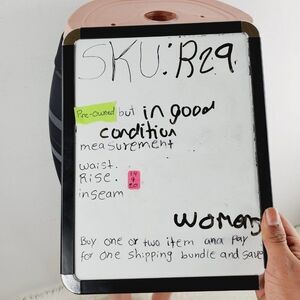 SKU: R29
Pre-Owned but in good
condition
measurement
waist. 14
Rise. 9
inseam 20
womens
Buy one or two item and Pay
for one shipping bundle and save